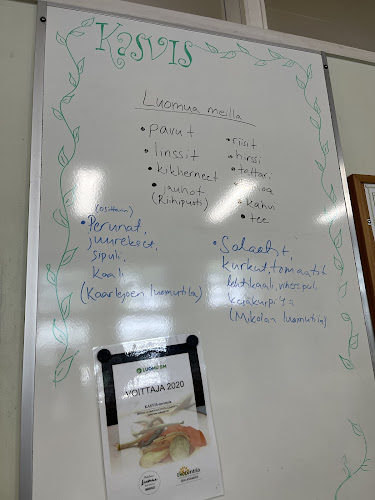 KASVIS
Luomua meillä
• pavut
• linssit
• kikherneet
• jauhot
(Riihipuoti)
• riisit
• hirssi
• tattari
• kahvi
• tee
(osittain)
• Perunat,
juurekset,
sipuli,
kaali
(Kaarlejoen luomutila)
• Salaatit,
kurkut, tomaatit
kesäkurpitsa
(Mikolan luomutila)
LUOMU SM
VOITTAJA 2020